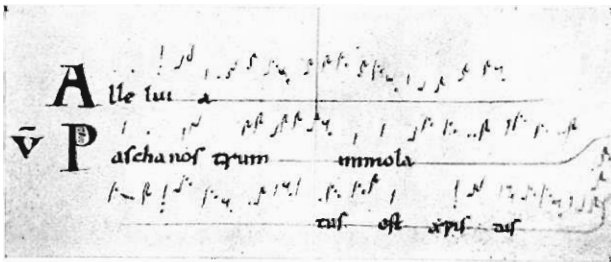 Alle lui a
v̄ Pascha nos trum immola
tus est xp̄is tus